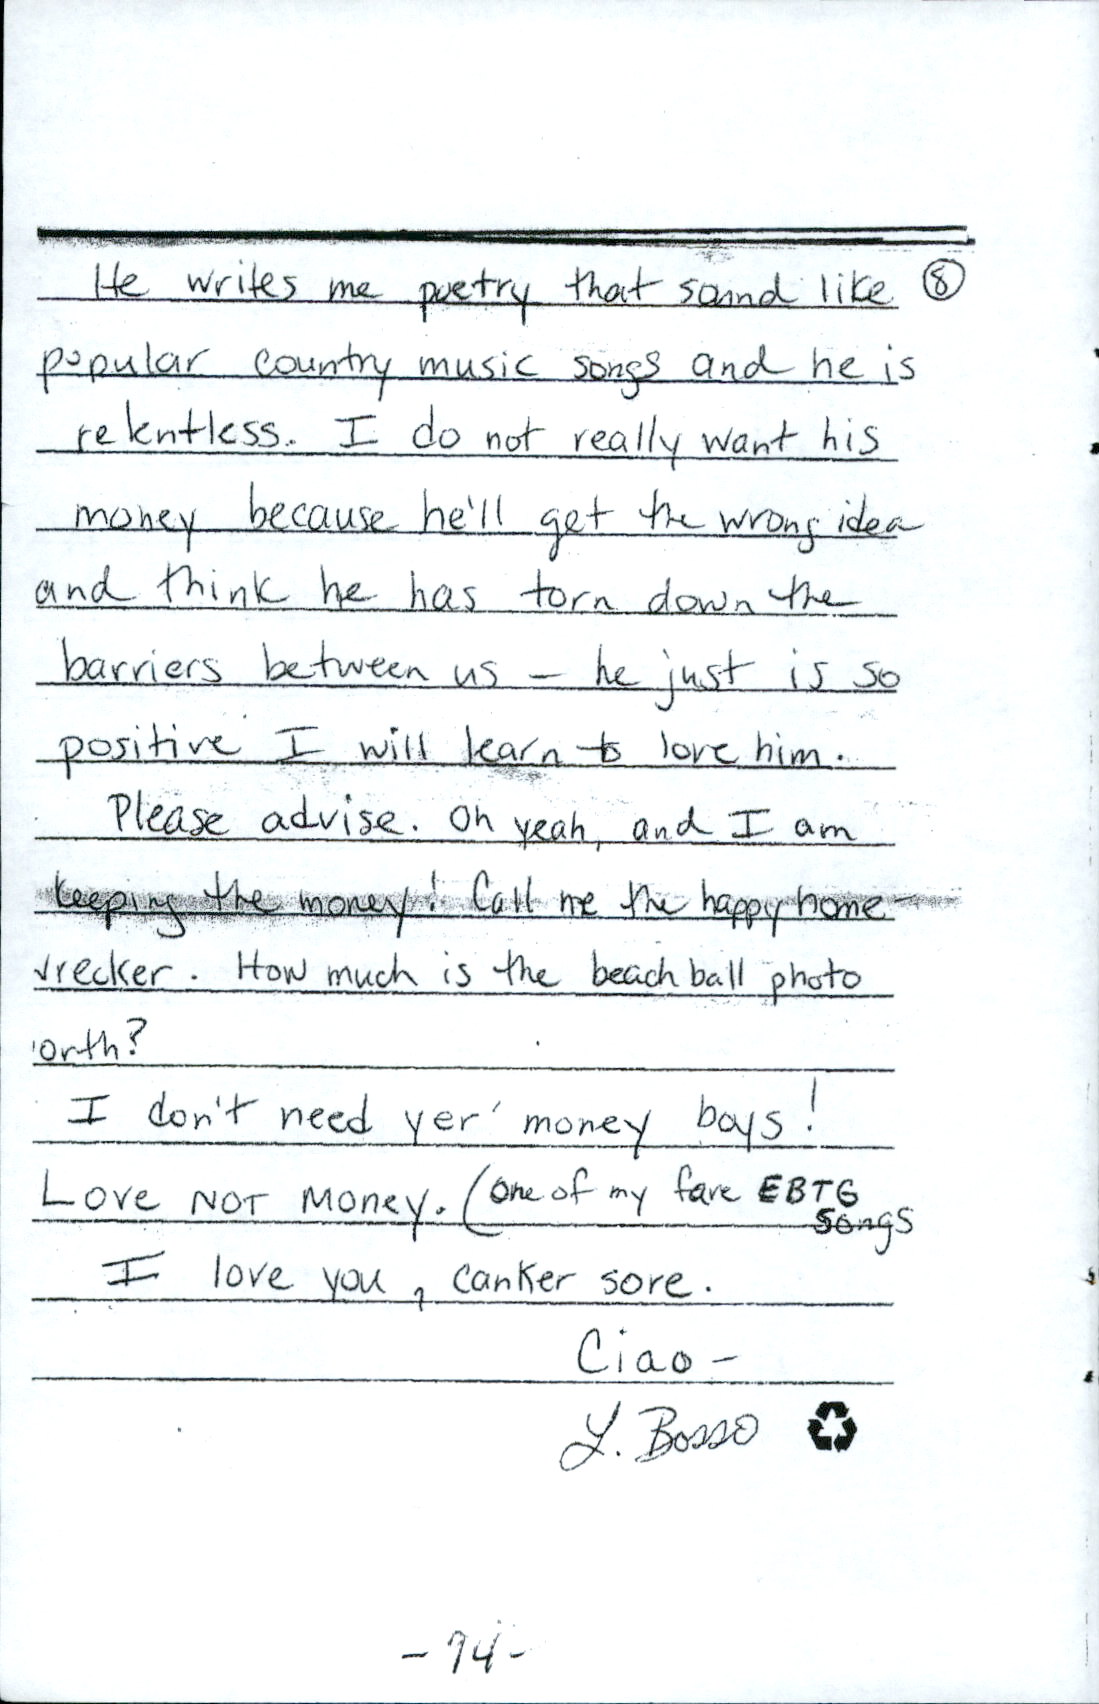 He writes me poetry that sound like ⑧
popular country music songs and he is
relentless. I do not really want his
money because he'll get the wrong idea
and think he has torn down the
barriers between us – he just is so
positive I will learn to love him.
Please advise. Oh yeah, and I am
keeping the money! Call me the happy home-
wrecker. How much is the beach ball photo
orth?
I don't need yer' money boys!
Love NOT Money. (One of my fave EBTG
songs
I love you, canker sore.
Ciao –
L. Bosso
-74-